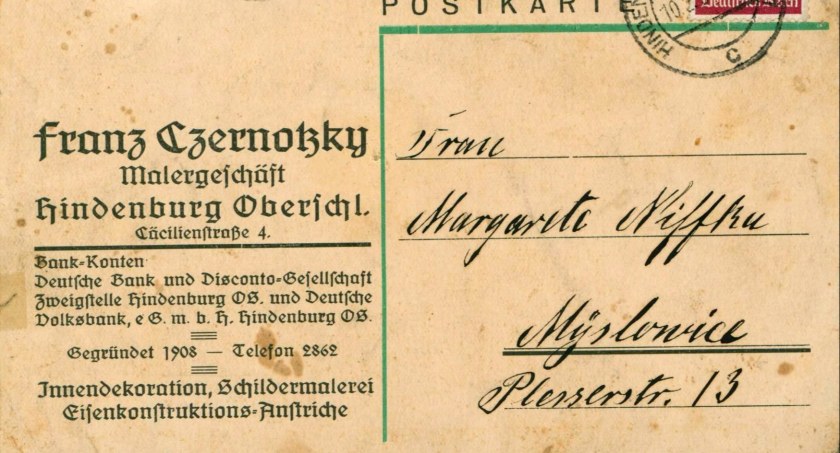 POSTKARTE
Deutsches Reich
HINDEN
10.
c
Franz Czernotzky
Malergeschäft
Hindenburg Oberschl.
Cäcilienstraße 4.
Bank-Konten
Deutsche Bank und Disconto-Gesellschaft
Zweigstelle Hindenburg OS. und Deutsche
Volksbank, e G. m. b. H. Hindenburg OS.
Gegründet 1908 — Telefon 2862
Innendekoration, Schildermalerei
Eisenkonstruktions-Anstriche
Frau
Margarete Niffka
Mÿslowice
Plesserstr. 13